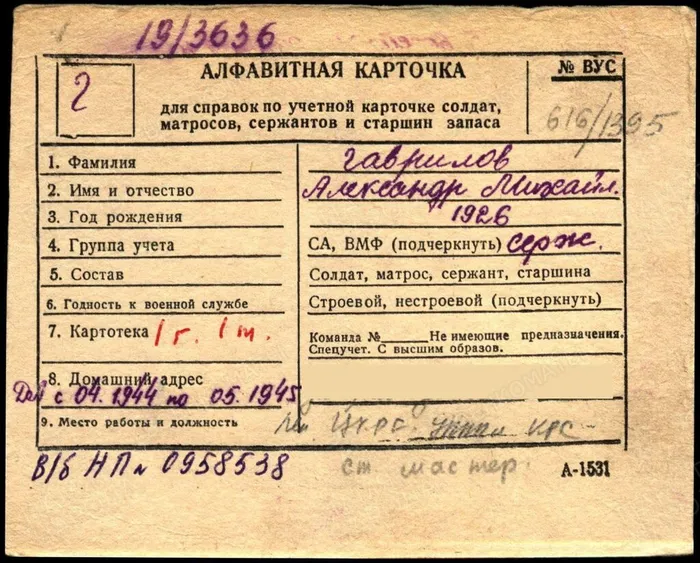 19/3636
АЛФАВИТНАЯ КАРТОЧКА
№ ВУС
2
для справок по учетной карточке солдат,
матросов, сержантов и старшин запаса
616/1395
1. Фамилия Гаврилов
2. Имя и отчество Александр Михайл.
3. Год рождения 1926
4. Группа учета СА, ВМФ (подчеркнуть) серж.
5. Состав Солдат, матрос, сержант, старшина
6. Годность к военной службе Строевой, нестроевой (подчеркнуть)
7. Картотека 1 г. 1 т. Команда № Не имеющие предназначения.
Спецучет. С высшим образов.
8. Домашний адрес
с 04.1944 по 05.1945
9. Место работы и должность
В/б НПи 0958538 ст мастер.
А-1531